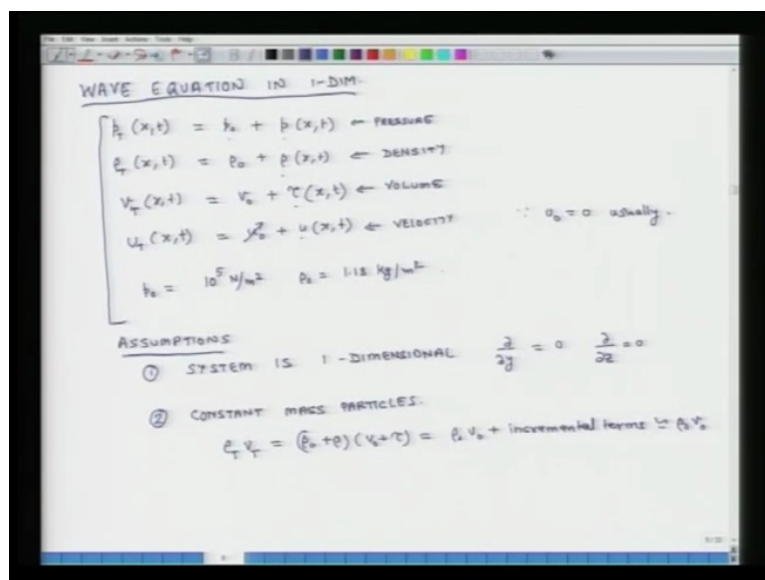 WAVE EQUATION IN 1-DIM.
p_T (x,t) = p_0 + p (x,t) ← PRESSURE
ρ_T (x,t) = ρ_0 + ρ (x,t) ← DENSITY
V_T (x,t) = V_0 + τ (x,t) ← VOLUME
u_T (x,t) = u_0 + u (x,t) ← VELOCITY ∵ u_0 = 0 usually.
p_0 = 10^5 N/m^2 ρ_0 = 1.18 kg/m^2
ASSUMPTIONS
① SYSTEM IS 1-DIMENSIONAL ∂/∂y = 0 ∂/∂z = 0
② CONSTANT MASS PARTICLES.
ρ_T V_T = (ρ_0 + ρ) (V_0 + τ) = ρ_0 V_0 + incremental terms ≃ ρ_0 V_0